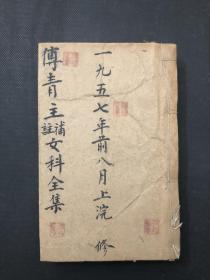 一九五七年前八月上浣 修
傅青主補註女科全集